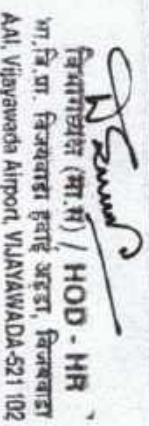 विभागाध्यक्ष (मा.सं) / HOD - HR
भा.वि.प्रा. विजयवाडा हवाई अड्डा, विजयवाडा
AAI, Vijayawada Airport, VIJAYAWADA-521 102